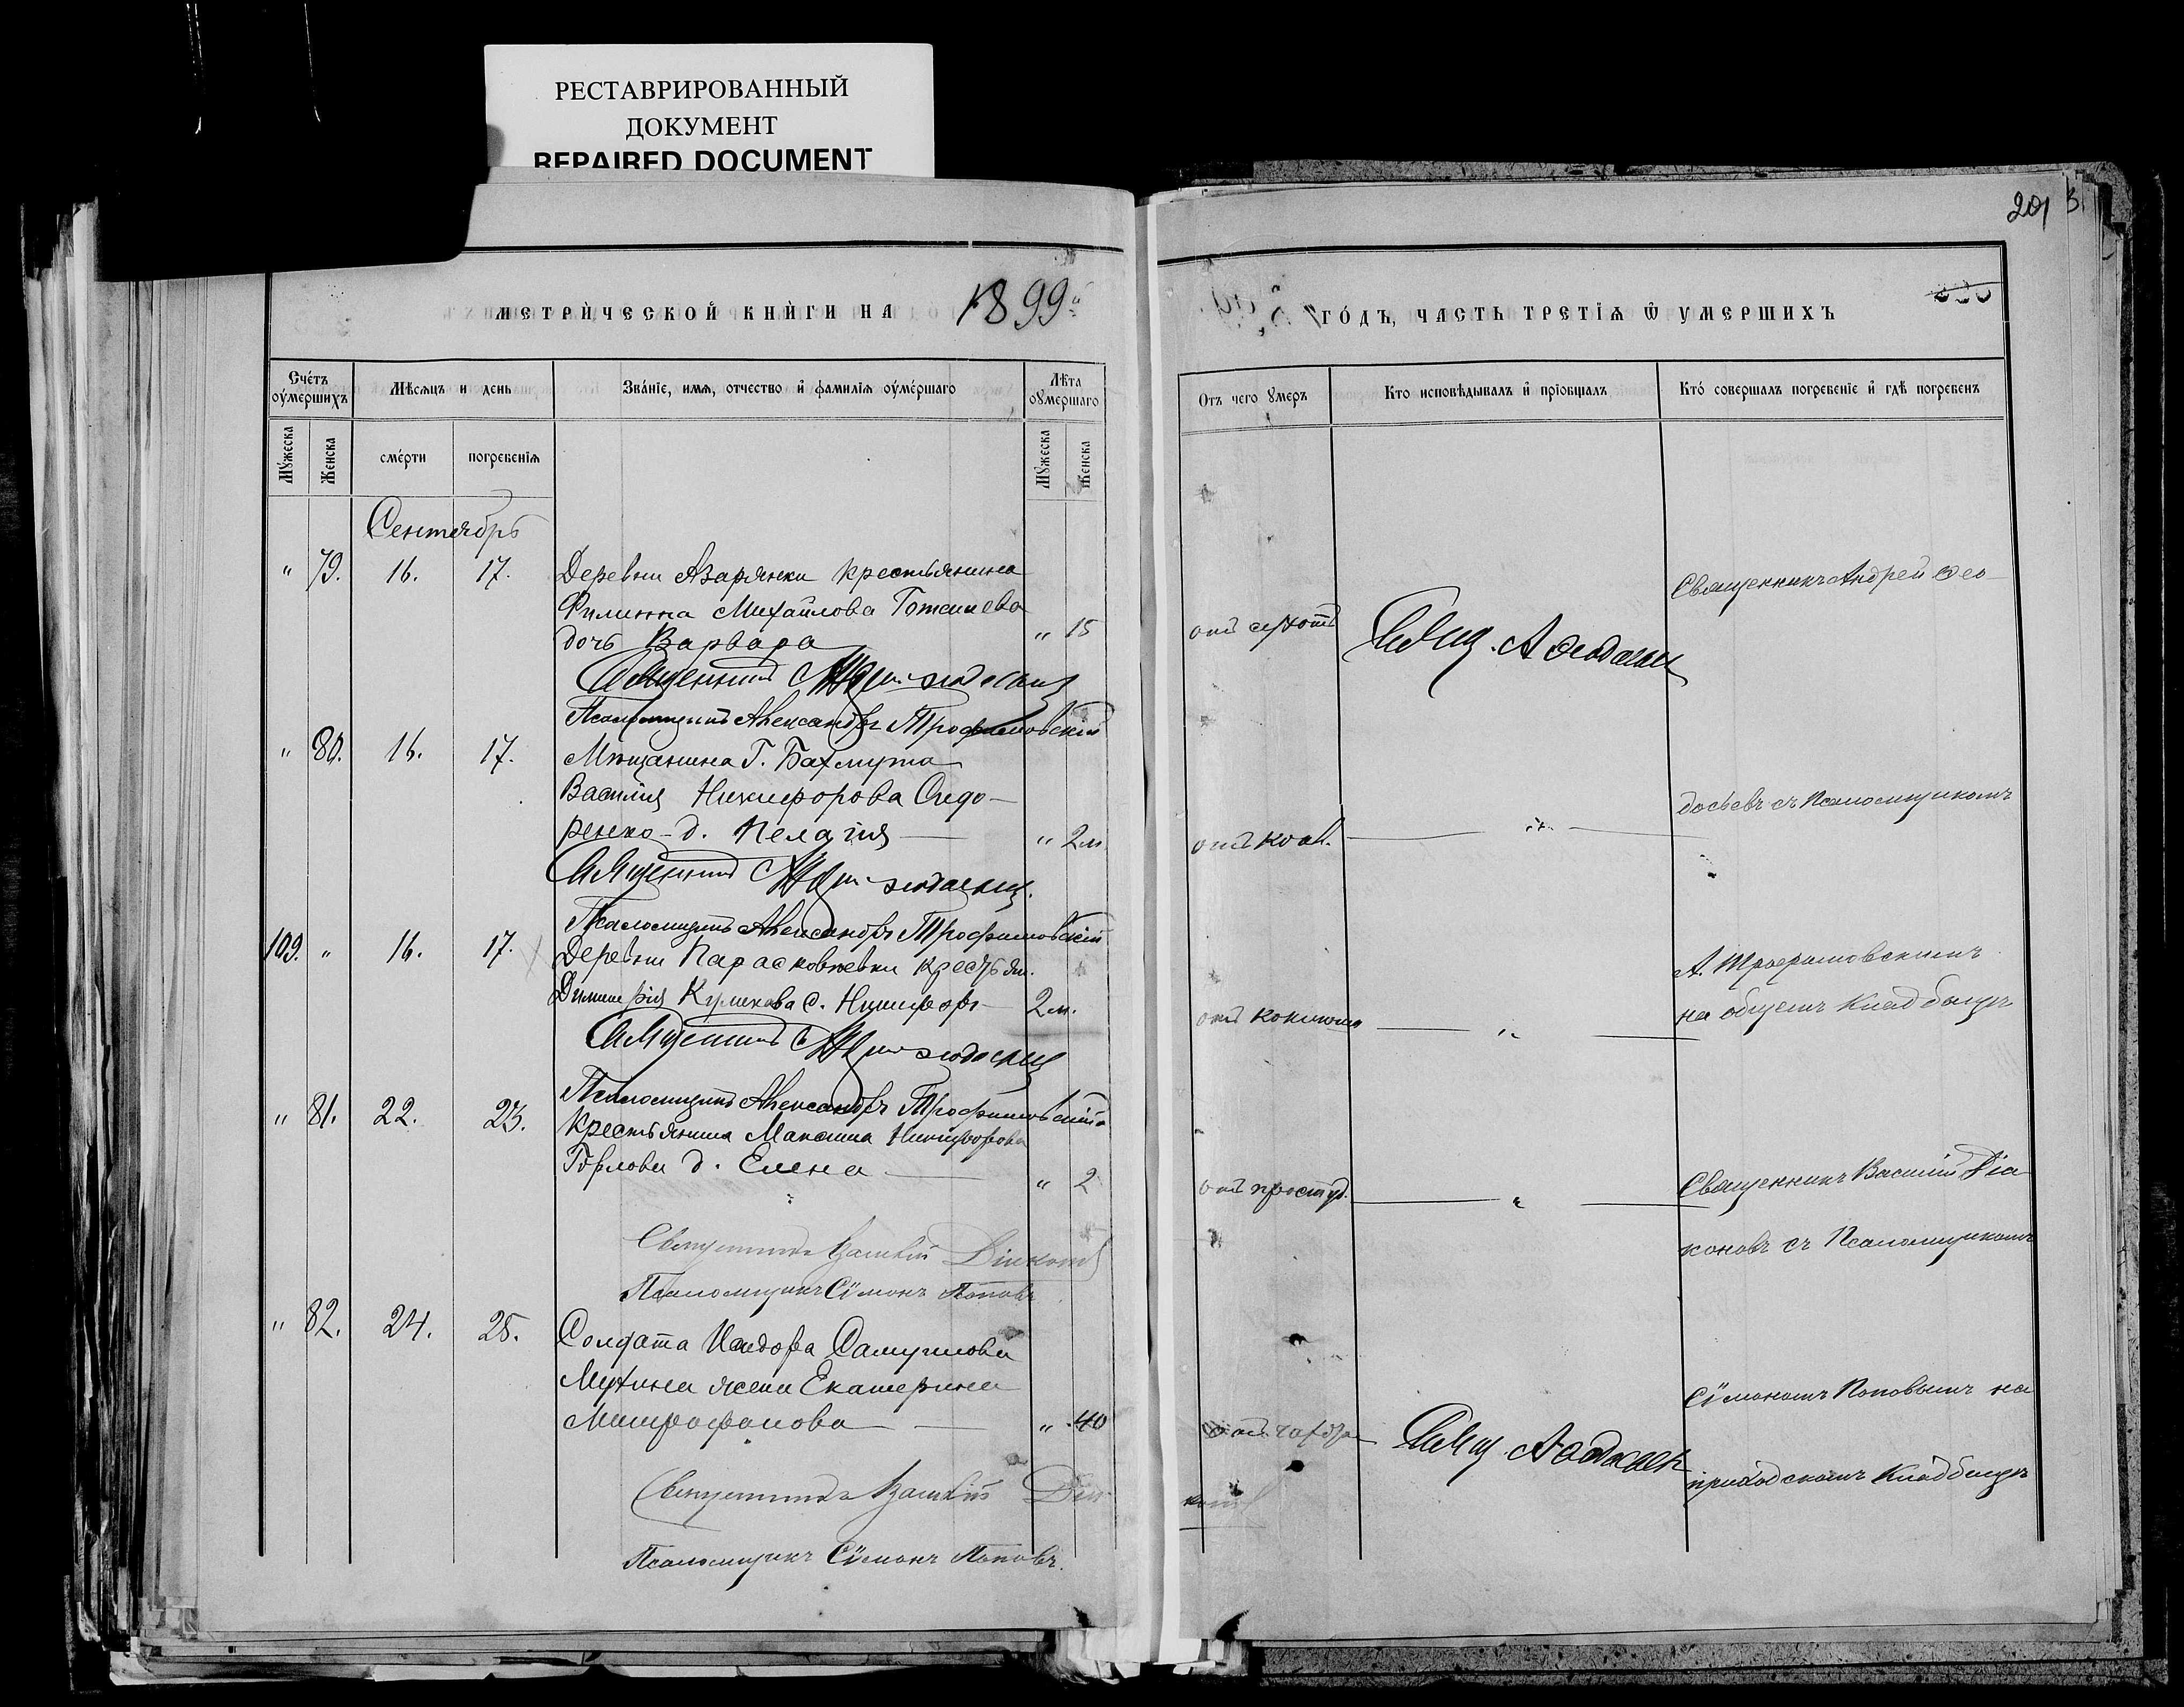 РЕСТАВРИРОВАННЫЙ
ДОКУМЕНТ
REPAIRED DOCUMENT
МЕТРИЧЕСКОЙ КНИГИ НА 1899й
Счетъ оумершихъ
Мѣсяцъ и день
Званіе, имя, отчество и фамилія оумершаго
Лѣта оумершаго
Мужеска
Женска
смерти
погребенія
Мужеска
Женска
Сентябрь
" 79. 16. 17. Деревни Азаряжки крестьянина
Филиппа Михайлова
дочь Варвара " 15
Священникъ
Псаломщикъ Александръ Трофимовскій
" 80. 16. 17. Мѣщанина Г. Бахмута
Василія Никифорова Сидо-
ренко д. Пелагія " 2 м
Священникъ
Псаломщикъ Александръ Трофимовскій
109. " 16. 17. Деревни Парасковѣевки крестьян.
Димитрія Куликова с. Никифоръ 2 м.
Священникъ
Псаломщикъ Александръ Трофимовскій
" 81. 22. 23. Крестьянина Максима Никифорова
Горлова д. Елена " 2
Священникъ Василій Діаконовъ
Псаломщикъ Сїмонъ Поповъ
" 82. 24. 25. Солдата Исидора Самуилова
Мухина жена Екатерина
Митрофанова " 40
Священникъ Василій Діа
коновъ
Псаломщикъ Сїмонъ Поповъ.
201
ГОДЪ, ЧАСТЬ ТРЕТІЯ Ѡ УМЕРШИХЪ
Отъ чего умеръ
Кто исповѣдывалъ и пріобщалъ
Кто совершалъ погребеніе и гдѣ погребенъ
Священникъ Андрей Ѳео-
отъ чахот. Свящ. А Ѳеодосьев
досьевъ съ Псаломщикомъ
отъ кок.
А. Трофимовскимъ
на общемъ кладбищѣ
отъ коклюша
Священникъ Василій Діа
отъ простуд.
коновъ съ Псаломщикомъ
Сїмономъ Поповымъ на
отъ чахот. Свящ. А
приходскомъ кладбищѣ